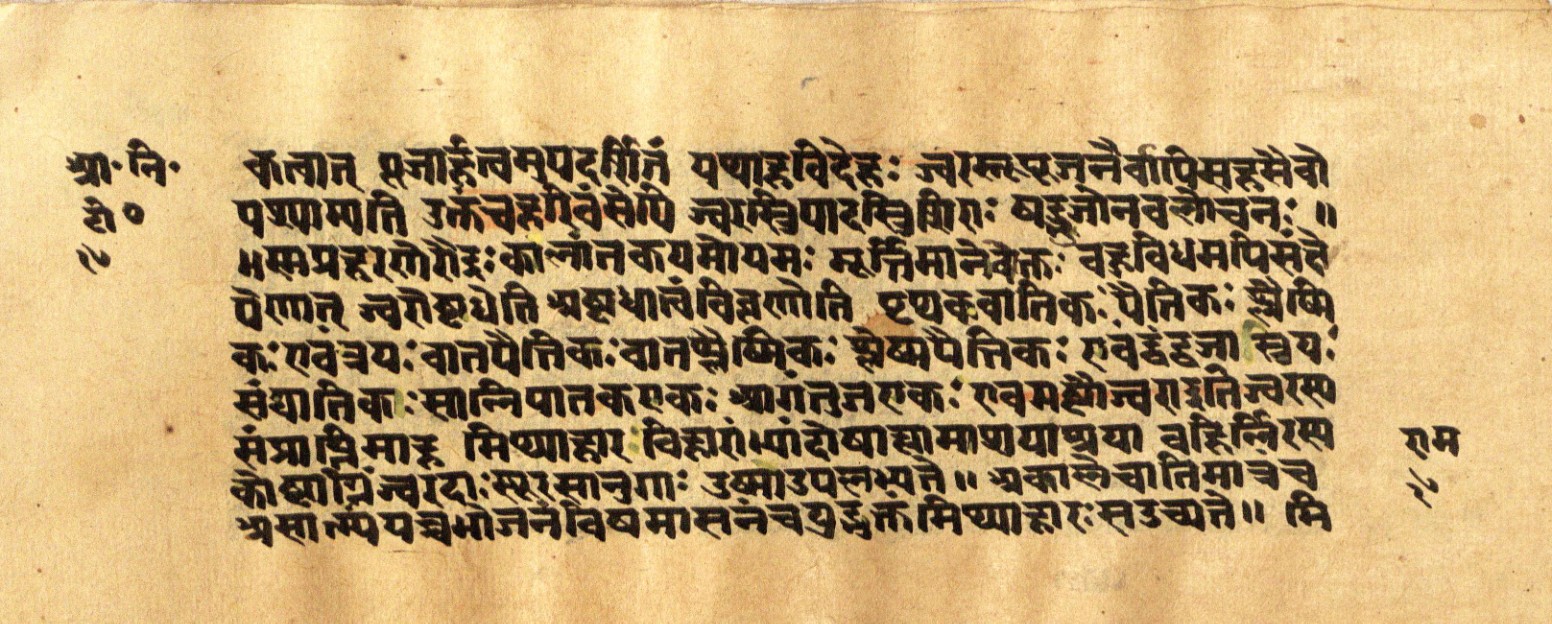 आ॰ नि॰
टी॰
कत्वात् पूजार्हत्वमुपदर्शितं यथाहविदेहः ज्वरस्तुपूजनैर्वापिसहसैवो
पशाम्यति उक्तंचहरिवंसेपि ज्वरस्त्रिपादस्त्रिशिराः षड्भुजोनवलोचनः ॥
॥भस्मप्रहरणोरौद्रः कालांतकयमोपमः मूर्त्तिमानेवोक्तः बहुविधमपिसंक्षे
पेणात् ज्वरोष्टधेति अष्टधात्वंविवृणोति पृथक्वातिकः पैत्तिकः श्लैष्मि
कः एवंत्रयः वातपैत्तिकः वातश्लैष्मिकः श्लेष्मपैत्तिकः एवंद्वंद्वजास्त्रयः
संघातिकः सान्निपातकएकः आगंतुजएकः एवमष्टौज्वराइतिज्वरस्य
संप्राप्तिमाह मिथ्याहार विहाराभ्यांदोषाह्यामाशयाश्रया बहिर्निरस्य
कोष्टाग्निंज्वरदाः स्युरसानुगाः उष्माउपलभ्यते॥ अकालेचातिमात्रंच
असात्म्यंयच्चभोजनंविषमासनंचयद्भुक्तंमिथ्याहारः सउच्यते॥ मि
राम